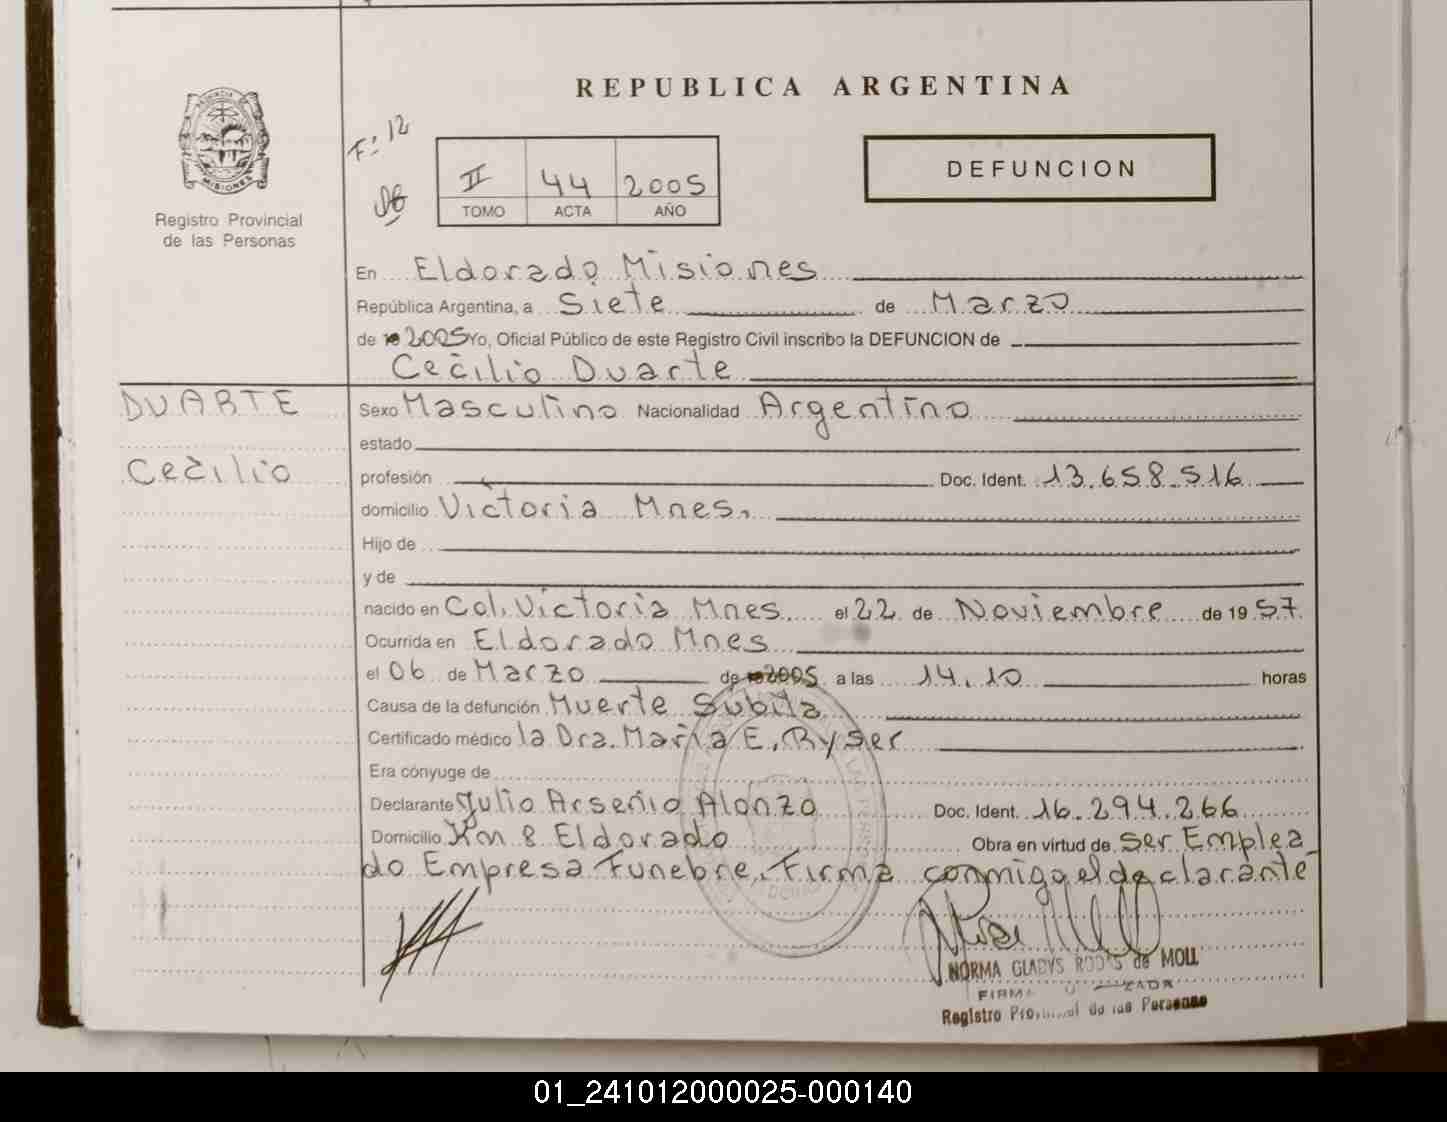 REPUBLICA ARGENTINA
PROVINCIA DE
MISIONES
Registro Provincial
de las Personas
Fº 12
II 44 2005
TOMO ACTA AÑO
DEFUNCION
En Eldorado Misiones
República Argentina, a Siete de Marzo
de 2005 Yo, Oficial Público de este Registro Civil inscribo la DEFUNCION de
Cecilio Duarte
DUARTE
Cecilio
Sexo Masculino Nacionalidad Argentino
estado
profesión Doc. Ident. 13.658.516
domicilio Victoria Mnes.
Hijo de
y de
nacido en Col. Victoria Mnes. el 22 de Noviembre de 1957.
Ocurrida en Eldorado Mnes
el 06 de Marzo de 2005 a las 14.10 horas
Causa de la defunción Muerte Subita
Certificado médico la Dra. Maria E. Ryser
Era cónyuge de
Declarante Julio Arsenio Alonzo Doc. Ident. 16.294.266
Domicilio Km 8 Eldorado Obra en virtud de Ser Emplea
do Empresa Funebre. Firma conmigo el declarante
NORMA GLADYS de MOLL
FIRMA
Registro Provincial de las Personas
01_241012000025-000140